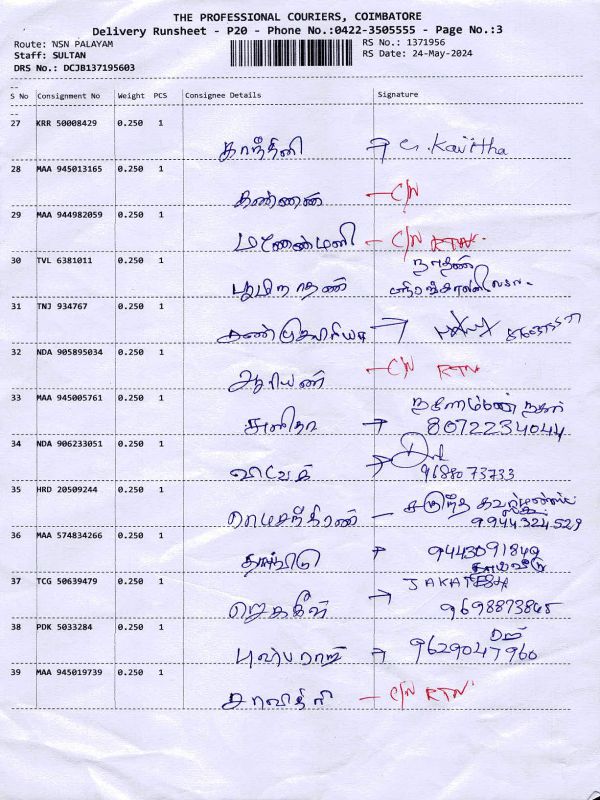 THE PROFESSIONAL COURIERS, COIMBATORE
Delivery Runsheet - P20 - Phone No.:0422-3505555 - Page No.:3
Route: NSN PALAYAM
RS No.: 1371956
Staff: SULTAN
RS Date: 24-May-2024
DRS No.: DCJB137195603
S No Consignment No Weight PCS Consignee Details Signature
27 KRR 50008429 0.250 1
காந்தினி → G. Kavitha
28 MAA 945013165 0.250 1
கண்ணன் - C/N
29 MAA 944982059 0.250 1
- C/N RTN.
30 TVL 6381011 0.250 1
நாதன்
பூமிநாதன்
31 TNJ 934767 0.250 1
→
32 NDA 905895034 0.250 1
ஆரியன் - C/N RTN
33 MAA 945005761 0.250 1
நகர்
சுனிதா → 8072234044
34 NDA 906233051 0.250 1
விவேக் →
9688073733
35 HRD 20509244 0.250 1
ராமசந்திரன் -
9944324529
36 MAA 574834266 0.250 1
→ 9443091849
37 TCG 50639479 0.250 1
JAKATESH
ஜெகதீஸ் → 9698873845
38 PDK 5033284 0.250 1
புஷ்பராஜ் → 9629047960
39 MAA 945019739 0.250 1
சாவித்ரி - C/N RTN